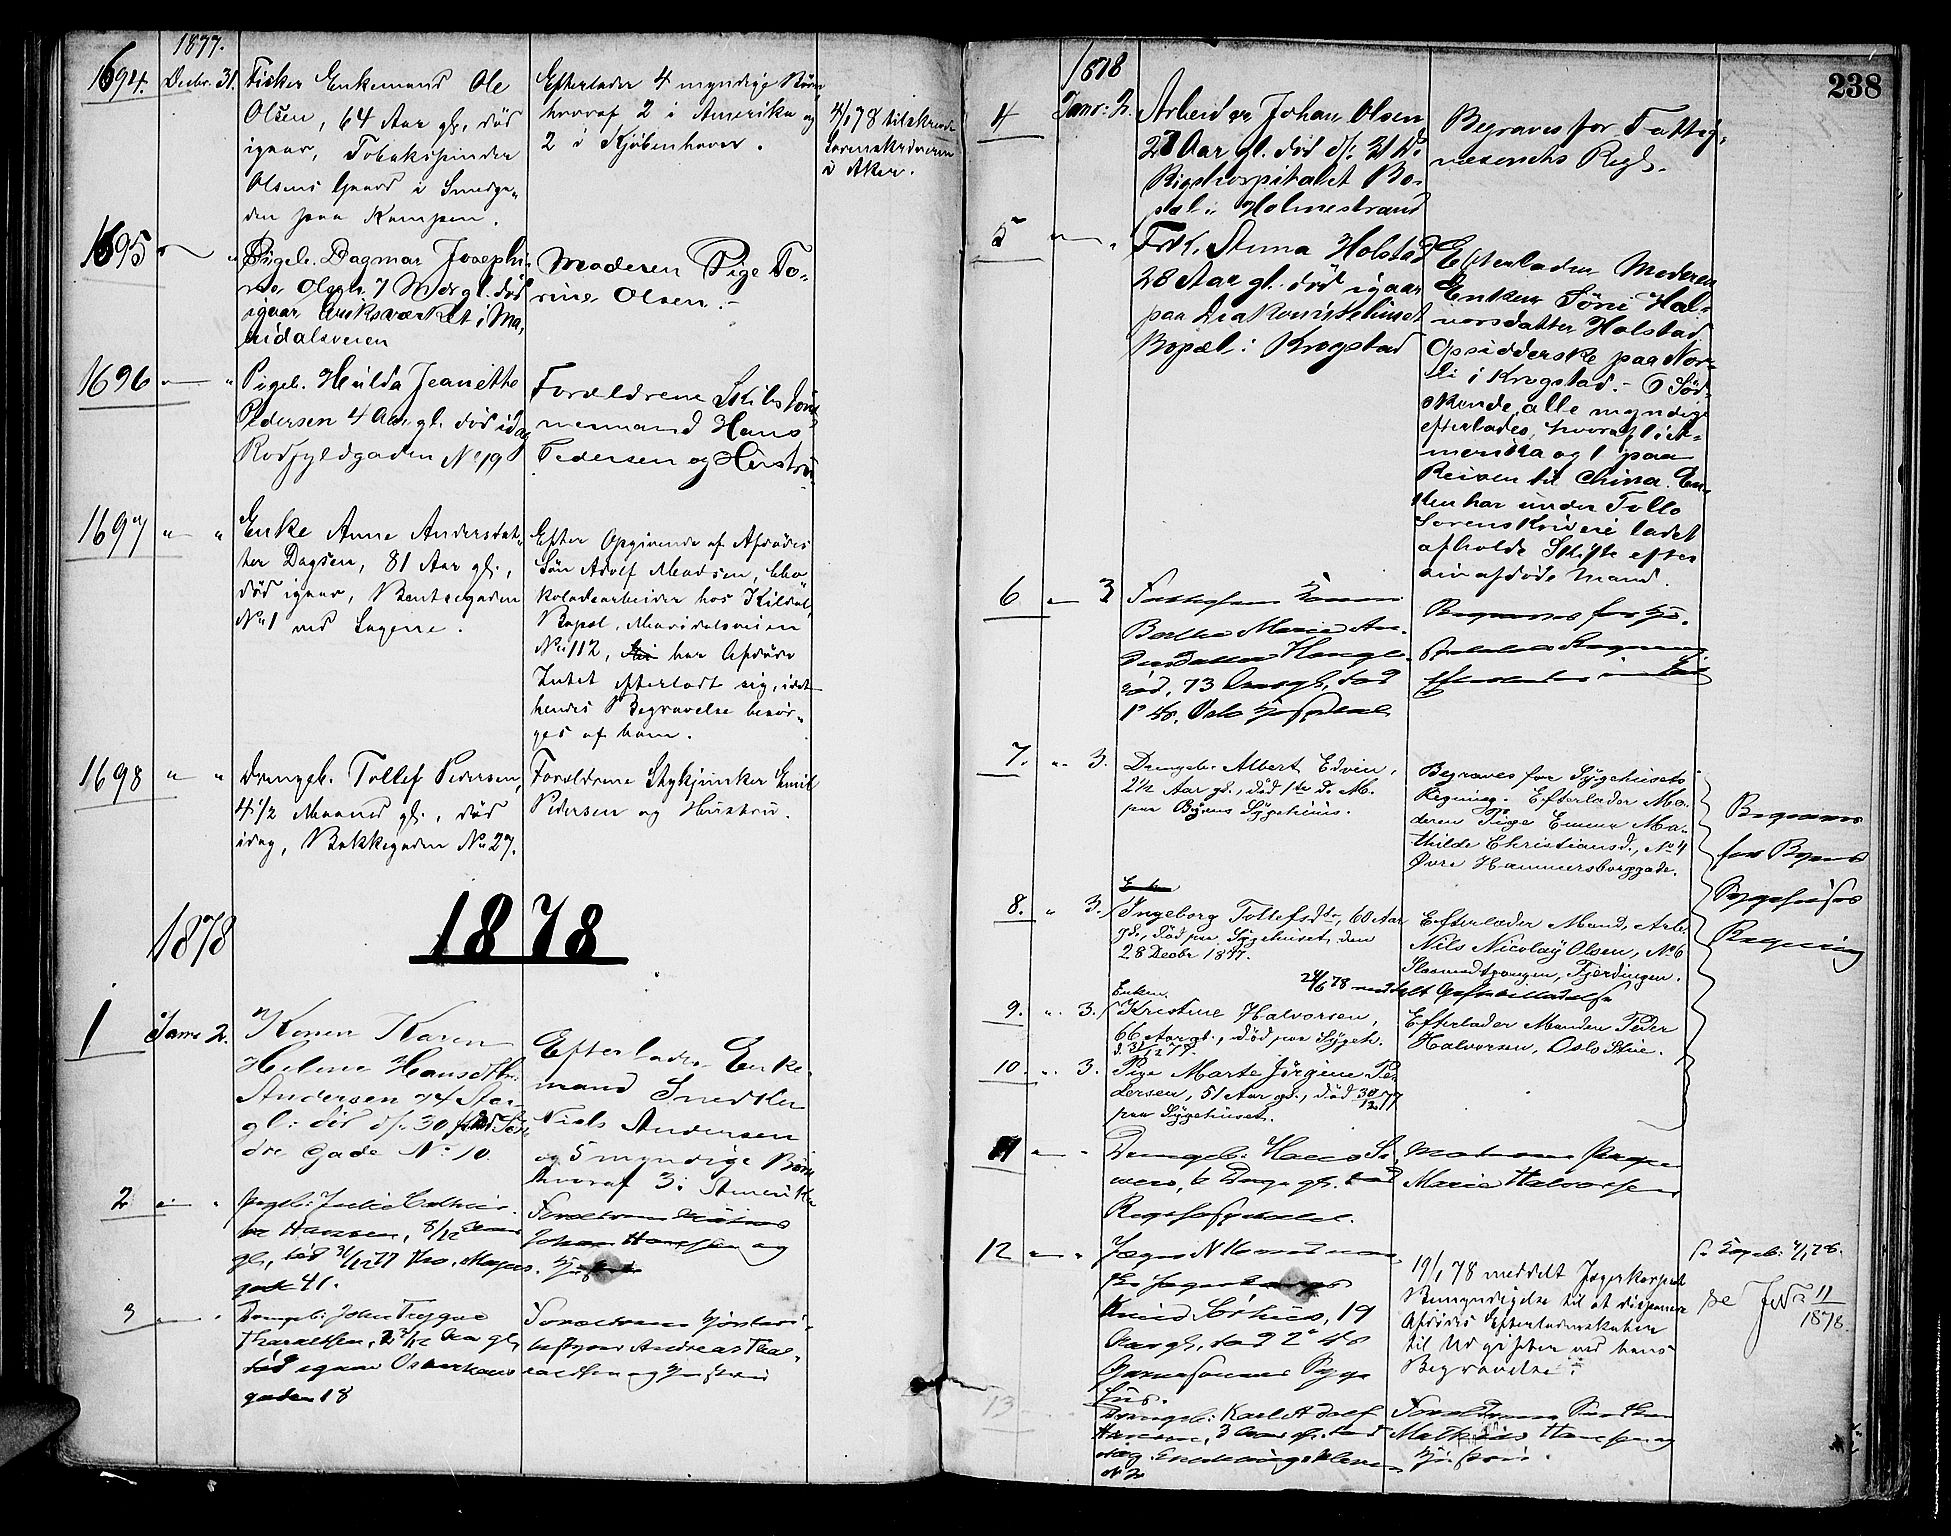 1877.
1694. Decbr. 31. Fisker Enkemand Ole
Olsen, 64 Aar gl., død
igaar, Tobakspinder
Olsens Gaard i Smedga-
den paa Kampen.
Efterlader 4 myndige Børn
hvoraf 2 i Amerika og
2 i Kjøbenhavn.
4/1 78 tilskrevet
Sorenskriveren
i Aker.
1695 — " Pigeb. Dagmar Josephi-
ne Olsen 7 Mdr gl. død
igaar Brugsværket i Ma-
ridalsveien
Moderen Pige To-
rine Olsen.-
1696 — " Pigeb. Hulda Jeanette
Pedersen 4 Aar gl. død idag
Rodfyldgaden No 19
Forældrene Skibstøm-
mermand Hans
Pedersen og Hustru
1697 " — " Enke Anne Andersdat-
ter Dagsen, 81 Aar gl.,
død igaar, Bentsegaden
No 1 ved Sagene.
Efter Opgivende af Afdødes
Søn Adolf Madsen, Cho-
koladearbeider hos Kildal,
Bopæl, Maridalsveien
No 112, har Afdøde
Intet efterladt sig, idet
hendes Begravelse besør-
ges af ham.
1698 " " Drengeb. Tollef Pedersen,
4 1/2 Maaned gl., død
idag, Bakkegaden No 27.
Forældrene Stykjunker Emil
Pedersen og Hustru.
1878 1878
1 Janr 2. Konen Karen
Helene Hansdttr.
Andersen 74 Aar
gl: død d/: 30
dre Gade No 10
Efterlader Enke-
mand Snedker
Niels Andersen
og 5 myndige Børn
hvoraf 3 i Amerika
2 — " Pigeb: Julie Cathri-
ne Hansen, 8/12 Aar
gl, død 31/12 77 Thv. Meyers
gade 41.
Forældrene
Johan Hansen og
Hustru
3 — " Drengeb: John Trygve
Tharaldsen, 2 2/12 Aar gl,
død igaar Osterhaus
gaden 18
Forældrene
bestyrer Andreas Thar-
aldsen og Hustru
238
1878
4 Janr: 2. Arbeider Johan Olsen
27 Aar gl. død d/: 31 D.
Rigshospitalet Bo-
pæl: Holmestrand
Begraves for Fattig-
væsenets Regl.
5 — " Frk. Stina Holstad
28 Aar gl. død igaar
paa Diakonissehuset
Bopæl: Krogstad
Efterlader Moderen
Enken Søni Hal-
vorsdatter Holstad
Opsidderske paa Nor-
li i Krogstad.- 6 Sød-
skende alle myndige
efterlades, hvoraf 1 i A-
merika og 1 paa
Reisen til China. En-
ken har under Follo
Sorenskriveri ladet
afholde Skifte efter
sin afdøde Mand.
6 — 3
Berthe Marie An-
dersdatter
73 Aar gl, død
1ste ds. Oslo Hospital
Begraves for
7. " 3. Drengeb. Albert Edvin,
2 1/2 Aar gl., død 1ste D. M.
paa Byens Sygehuus.
Begraves for Sygehusets
Regning. Efterlader Mo-
deren Pige Emma Ma-
thilde Christiansd., No 4
Øvre Hammersborggade.
Begraves
for Byens
Sygehuses
Regning
8. " 3. Ingeborg Tollefsdtr, 60 Aar
gl., død paa Sygehuset den
28 Decbr 1877.
Efterlader Mand, Arb.
Nils Nicolay Olsen, No 6
Slamodtrangen, Fjerdingen.
24/6 78 meddelt
9. " 3. Enken
Kristine Halvorsen,
66 Aar gl., død paa Sygeh.
d. 31/12 77.
Efterlader Manden Peder
Halvorsen, Oslo Stue.
10. " 3. Pige Marte Jørgine Pe-
dersen, 51 Aar gl., død 30/12 77
paa Sygehuset.
11 — " Drengeb: Hans
6 Dage gl. død
Rigshospitalet.
Moderen Pigen
Marie Halvorsen
12 — " Jæger N
Knud Sørhus, 19
Aar gl, død 2de ds
Garnisonens Syge
hus.
19/1 78 meddelt Jægerkorpset
Bemyndigelse til at disponere
Afdødes Efterladenskaber
til Udgiften ved hans
Begravelse.
se Jnr 11/1878.
13 Drengeb: Karl Adolf
Hansen, 3 Aar gl. død
idag
No 2
Forældrene
Mathias Hansen og
Hustru.